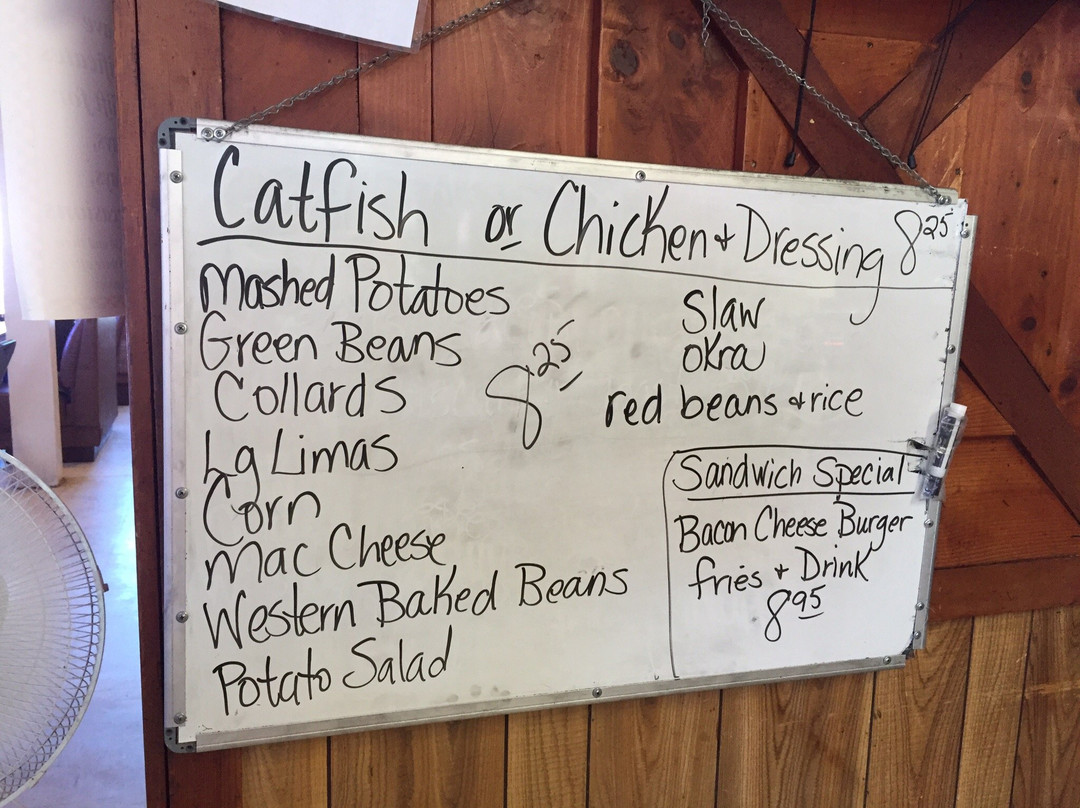 Catfish or Chicken + Dressing 8 25
Mashed Potatoes
Green Beans
Collards
Lg Limas
Corn
Mac Cheese
Western Baked Beans
Potato Salad
8 25
Slaw
Okra
red beans + rice
Sandwich Special
Bacon Cheese Burger
fries + Drink
8 95